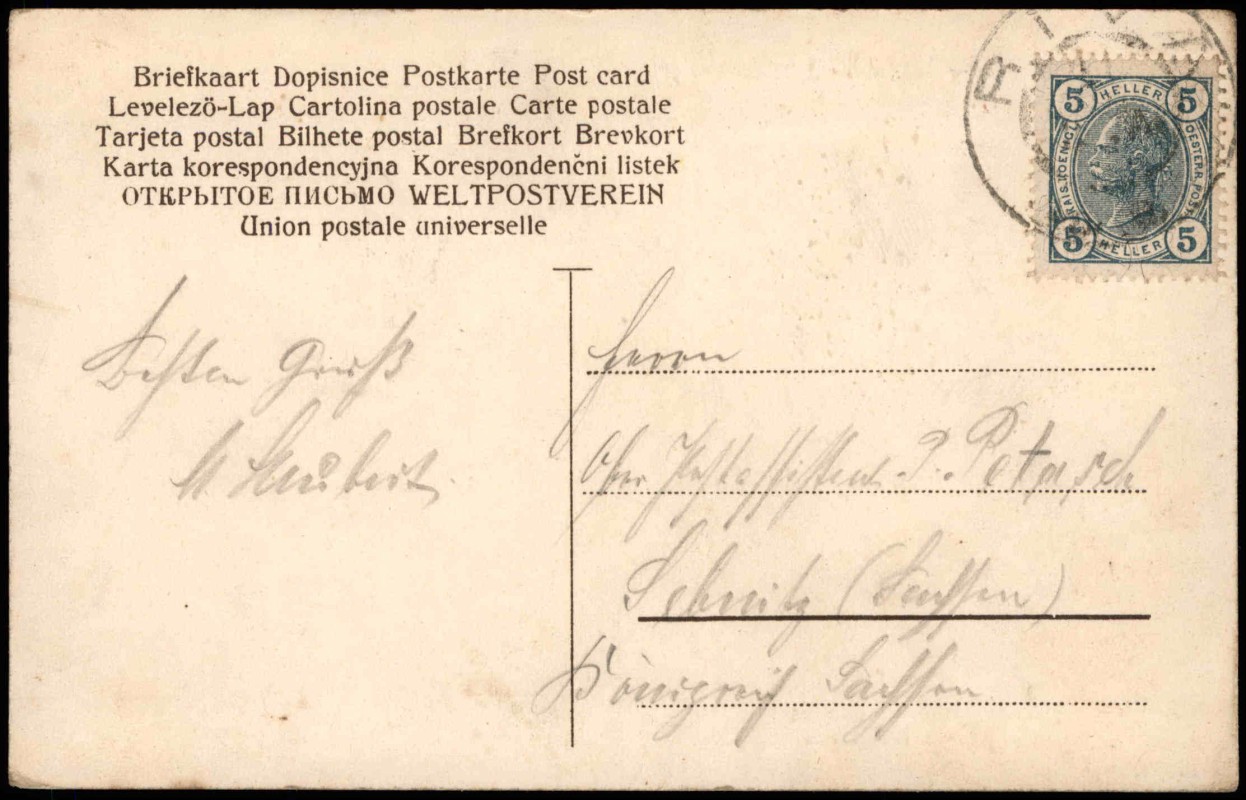 Briefkaart Dopisnice Postkarte Post card
Levelezö-Lap Cartolina postale Carte postale
Tarjeta postal Bilhete postal Brefkort Brevkort
Karta korespondencyjna Korespondenčni listek
ОТКРЫТОЕ ПИСЬМО WELTPOSTVEREIN
Union postale universelle
5 HELLER 5
KAIS. KOENIGL. OESTERR. POST
5 HELLER 5
Besten Gruß
Schubert
Herrn
Ober Postassistent P. Petasch
Sebnitz (Sachsen)
Königreich Sachsen